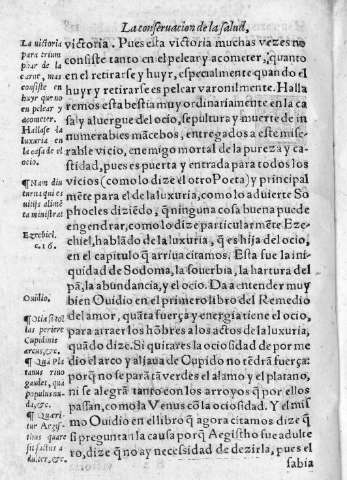 La conseruacion de la salud,
victoria. Pues esta victoria muchas vezes no
consiste tanto en el pelear y acometer, quanto
en el retirarse y huyr, especialmente quando el
huyr y retirarse es pelear varonilmente. Halla
remos esta bestia muy ordinariamente en la ca
sa y aluergue del ocio, sepultura y muerte de in
numerabies mācebos, entregados a este mise
rable vicio, enemigo mortal de la pureza y ca-
stidad, pues es puerta y entrada para todos los
vicios (como lo dize el otro Poeta) y principal
mēte para el de la luxuria, como lo aduierte So
phocles diziēdo, q̄ ninguna cosa buena puede
engendrar, como lo dize particularmēte Eze-
chiel, hablādo de la luxuria, q̄ es hija del ocio,
en el capitulo q̄ arriua citamos. Esta fue la ini-
quidad de Sodoma, la souerbia, la hartura del
pā, la abundancia, y el ocio. Da a entender muy
bien Ouidio en el primero libro del Remedio
del amor, quāta fuerça y energia tiene el ocio,
para atraer los hōbres a los actos de la luxuria,
quādo dize. Si quitares la ociosidad de por me
dio el arco y aljaua de Cupido no tēdrā fuerça:
porq̄ no se parā tā verdes el alamo y el platano,
ni se alegrā tanto con los arroyos q̄ por ellos
passan, como la Venus cō la ociosidad. Y el mis
mo Ouidio en el libro q̄ agora citamos dize q̄
si preguntan la causa porq̄ Aegistho fue adulte
ro, dize q̄ no ay necessidad de dezirla, pues el
sabia
La victoria
para trium
phar de la
carne, mas
consiste en
huyr que no
en pelear y
acometer.
Hallase la
luxuria en
la casa de el
ocio.
¶ Nam diu
turna qui es
vitijs alimē
ta ministrat
Ezechiel.
c. 16.
Ouidio.
¶ Otia si tol
las periere
Cupidinis
arcus, &c.
¶ Quā Pla
tanus riuo
gaudet, quā
populus vn-
da, &c.
¶ Quæri-
tur Aegis-
thus quare
sit factus a
dulter, &c.